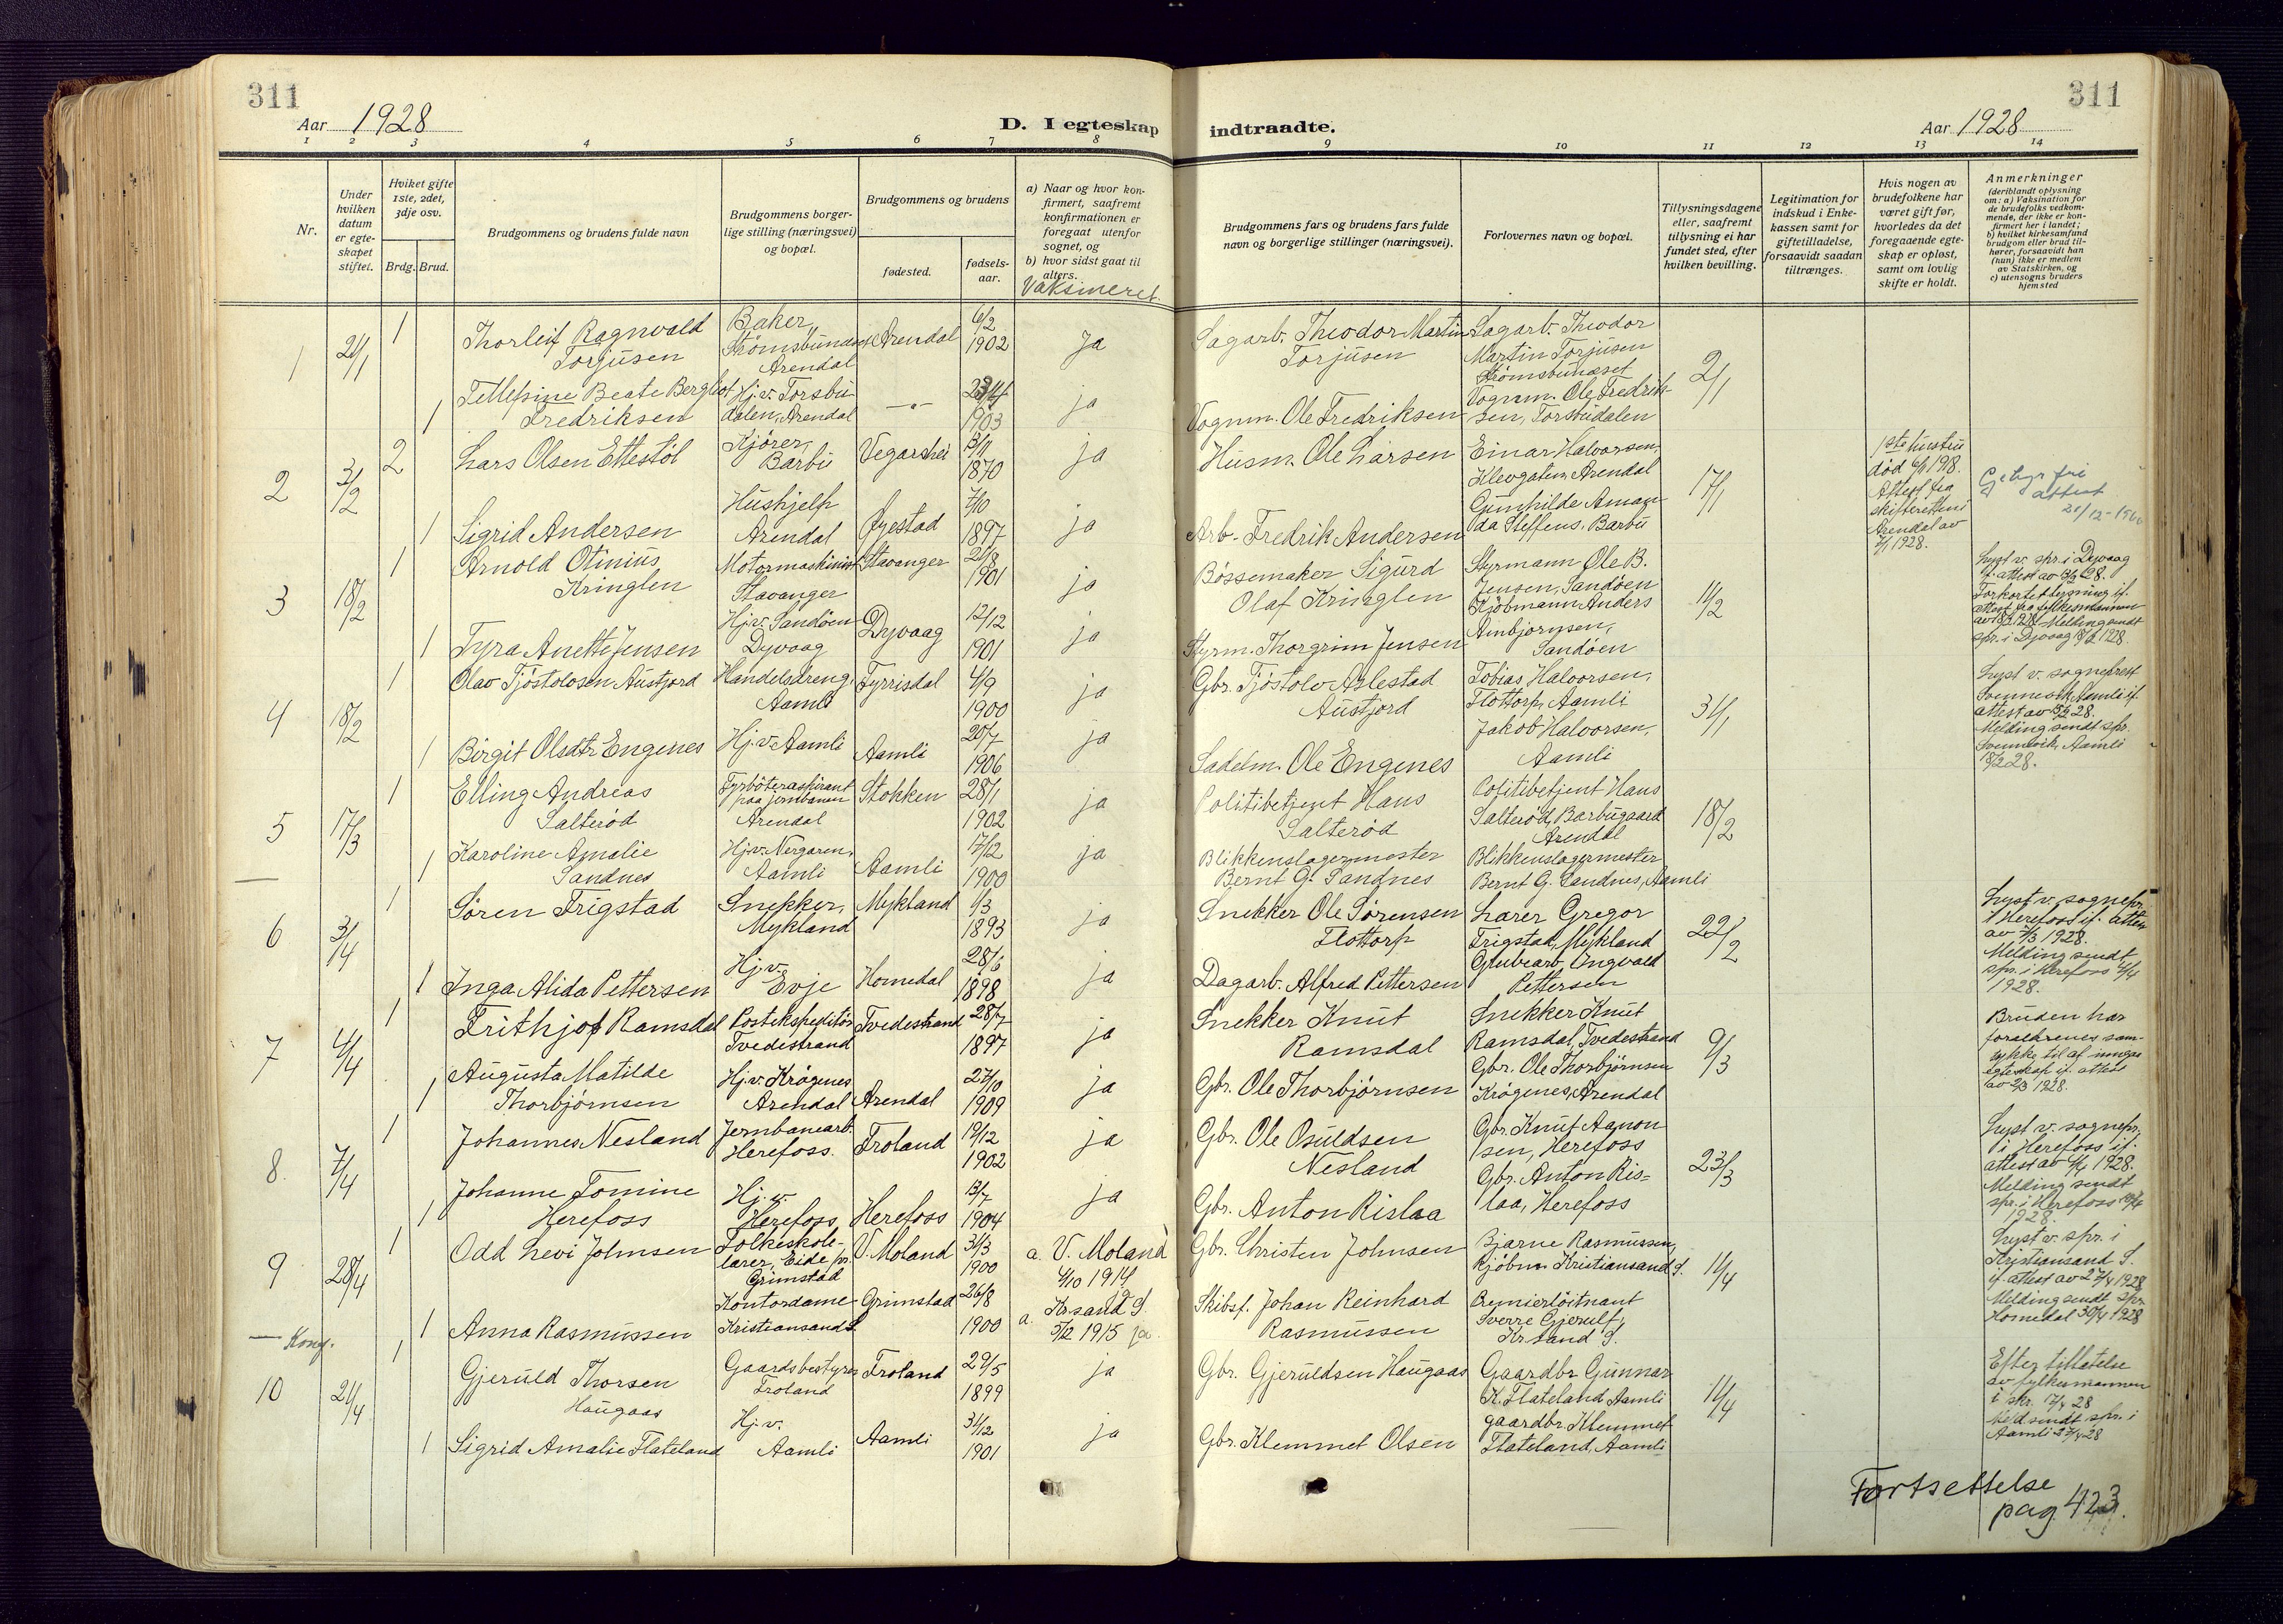 311
Aar 1928
D. I egteskap
indtraadte.
Aar 1928
311
1 2 3 4 5 6 7 8
9 10 11 12 13 14
Nr.
Under hvilken datum er egte-skapet stiftet.
Hviket gifte 1ste, 2det, 3dje osv.
Brdg. Brud.
Brudgommens og brudens fulde navn
Brudgommens borger-lige stilling (næringsvei) og bopæl.
Brudgommens og brudens
fødested.
fødsels-aar.
a) Naar og hvor kon-firmert, saafremt konfirmationen er foregaat utenfor sognet, og
b) hvor sidst gaat til alters.
Vaksineret.
Brudgommens fars og brudens fars fulde navn og borgerlige stillinger (næringsvei).
Forlovernes navn og bopæl.
Tillysningsdagene eller, saafremt tillysning ei har fundet sted, efter hvilken bevilling.
Legitimation for indskud i Enke-kassen samt for giftetilladelse, forsaavidt saadan tiltrænges.
Hvis nogen av brudefolkene har været gift før, hvorledes da det foregaaende egte-skap er opløst, samt om lovlig skifte er holdt.
Anmerkninger
(deriblandt oplysning om: a) Vaksination for de brudefolks vedkom-mende, der ikke er kon-firmert her i landet; b) hvilket kirkesamfund brudgom eller brud til-hører, forsaavidt han (hun) ikke er medlem av Statskirken, og c) utensogns bruders hjemsted
1 21/1 1 Thorleif Ragnvald Torjusen Baker, Arendal Arendal 6/2 1902 ja Sagarb. Theodor Martin Torjusen Sagarb. Theodor Martin Torjusen Strømsbunæset 2/1
1 Tellefsine Beate Bergliot Fredriksen Hj. v. Torsbudalen, Arendal —"— 1903 ja Vognm. Ole Fredriksen Vognm. Ole Fredriksen, Torsbudalen
2 3/2 2 Lars Olsen Ettestöl Kjører, Barbu Vegarshei 13/11 1870 ja Husm. Ole Larsen Einar Halvorsen, Klevgaten, Arendal 17/1 1ste hustru død Attest fra skifteretten i Arendal av 1928. Gebyrfri attest
1 Sigrid Andersen Hushjelp Arendal Øyestad 7/10 1897 ja Arb. Fredrik Andersen Gunhilde Amanda Steffens. Barbu
3 18/2 1 Arnold Otinius Kringlen Motormaskinist Stavanger Stavanger 21/8 1901 ja Bössemaker Sigurd Olaf Kringlen Styrmann Ole B. Jensen, Sandöen 11/2 Lyst v. spr. i Dyvaag if. attest av 28. Forkortet lysning if. attest fra fylkesmannen av 18/2 1928. Melding sendt spr. i Dyvaag 18/2 1928.
1 Tyra Anette Jensen Hj. v. Sandöen Dyvaag Dyvaag 12/12 1901 ja Styrm. Thorgrim Jensen Kjöbmann Anders Ainbjornsen, Sandöen
4 18/2 1 Olav Tjöstolvsen Austjord Handelsdreng, Aamli Fyrrisdal 4/9 1900 ja Gbr. Tjöstolv Aslestad Austjord Tobias Halvorsen, Flottorp, Aamli 31/1 Lyst v. sogneprest Svennevik, Aamli if. attest av 28. Melding sendt spr. Svennevik, Aamli 18/2 28.
1 Birgit Olsdtr Engenes Hj. v. Aamli Aamli 20/7 1906 ja Sadelm. Ole Engenes Jakob Halvorsen, Aamli
5 17/3 1 Elling Andreas Salteröd Fyrböteraspirant paa jernbanen Arendal Stokken 28/1 1902 ja Politibetjent Hans Salteröd Politibetjent Hans Salteröd, Barbugaard Arendal 18/2
1 Karoline Amalie Sandnes Hj. v. Nergaren, Aamli Aamli 17/12 1900 ja Blikkenslagermester Bernt G. Sandnes Blikkenslagermester Bernt G. Sandnes, Aamli
6 3/4 1 Sören Frigstad Snekker, Mykland Mykland 1/3 1893 ja Snekker Ole Sörensen Flottorp Lærer Gregor Frigstad, Mykland 22/2 Lyst v. sognepr. i Herefoss if. attest av 1928. Melding sendt spr. i Herefoss 4/4 1928.
1 Inga Alida Pettersen Hj. v. Evje Homedal 28/6 1898 ja Dagarb. Alfred Pettersen Grubearb. Ingvald Pettersen
7 4/4 1 Frithjof Ramsdal Postekspeditör Tvedestrand Tvedestrand 28/7 1897 ja Snekker Knut Ramsdal Snekker Knut Ramsdal, Tvedestrand 9/3 Bruden har forældrenes samtykke til af inngaa egteskap if. attest av 2/3 1928.
1 Augusta Matilde Thorbjörnsen Hj. v. Krögenes Arendal Arendal 27/10 1909 ja Gbr. Ole Thorbjörnsen Gbr. Ole Thorbjörnsen Krögenes, Arendal
8. 7/4 1 Johannes Nesland Jernbanearb. Herefoss. Froland 19/12 1902 ja Gbr. Ole Osuldsen Nesland Gbr. Knut Aanonsen, Herefoss 23/3 Lyst v. sognepr. i Herefoss if. attest av 1928. Melding sendt spr. i Herefoss 1928.
1 Johanne Tomine Herefoss Hj. v. Herefoss Herefoss 13/7 1904 ja Gbr. Anton Rislaa Gbr. Anton Rislaa, Herefoss
9 28/4 1 Odd Levi Johnsen Folkeskolelærer, Eide pr. Grimstad V. Moland 31/3 1900 a. V. Moland 4/10 1914 Gbr. Christen Johnsen Bjarne Rasmussen, Kjöbm. Kristiansand S. 11/4 Lyst v. spr. i Kristiansand S. if. attest av 27/4 1928 Melding sendt spr. Homedal 30/4 1928
Kong. 1 Anna Rasmussen Kontordame Kristiansand S. Grimstad 26/8 1900 a. Kr.sand S. 5/12 1915 ja Skibsf. Johan Reinhard Rasmussen Premierlöitnant Sverre Gjerulf, Kr.sand S.
10 21/4 1 Gjeruld Thorsen Haugaas Gaardsbestyrer Froland Froland 29/5 1899 ja Gbr. Gjeruldsen Haugaas Gaardbr. Gunnar K. Flateland, Aamli 11/4 Efter tillatelse av fylkesmannen i skr. 17/4 28 Meld. sendt spr. i Aamli 28
1 Sigrid Amalie Flateland Hj. v. Aamli Aamli 31/12 1901 ja Gbr. Klemmet Olsen gaardbr. Klemmet Flateland, Aamli
Fortsettelse
pag. 423.